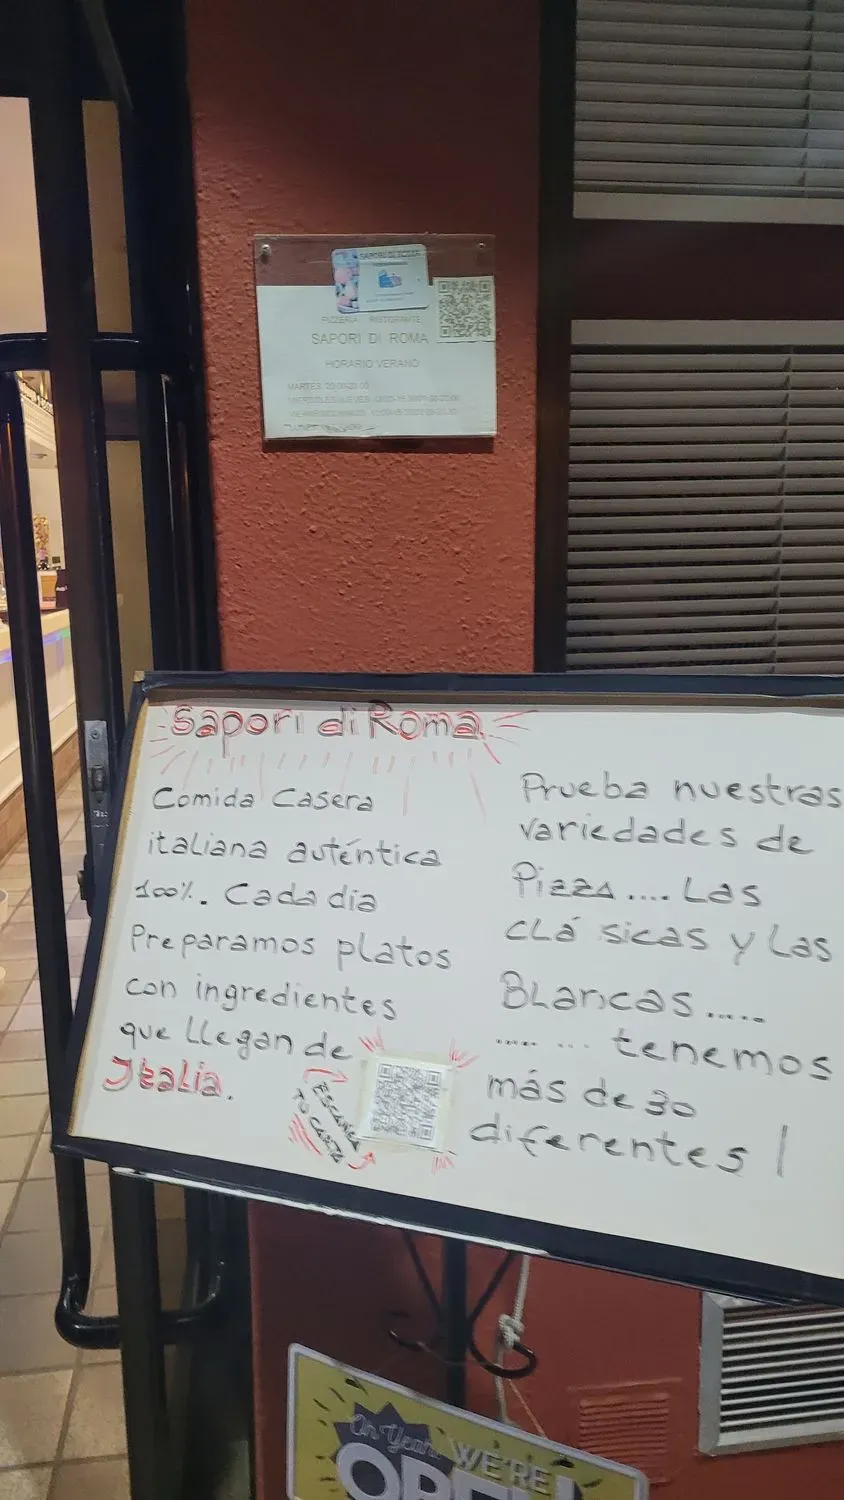 SAPORI DI ROMA
PIZZERIA RISTORANTE
SAPORI DI ROMA
HORARIO VERANO
MARTES
Sapori di Roma
Comida Casera
italiana auténtica
100%. Cada dia
Preparamos platos
con ingredientes
que LLegan de
Italia.
ESCANEA
TU CARTA
Prueba nuestras
variedades de
Pizza.... Las
CLá sicas y Las
BLancas.....
..... ... tenemos
más de 30
diferentes !
Oh Yeah!
WE'RE
OPEN